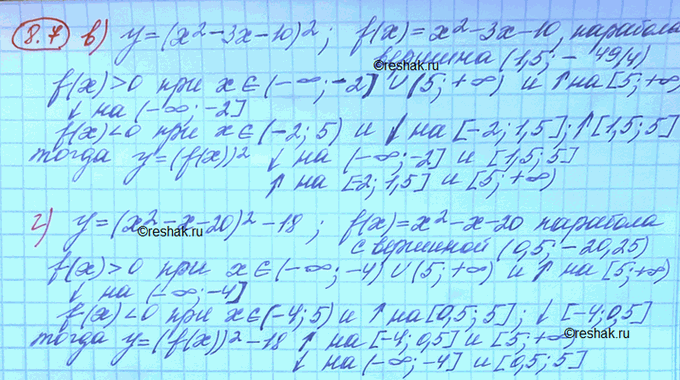 8.7 в) y=(x²-3x-10)²; f(x)=x²-3x-10, парабола
©reshak.ru
вершина (1,5; -49/4)
f(x)>0 при x∈(-∞;-2]∪(5;+∞) и ↑ на [5;+∞)
↓ на (-∞;-2]
f(x)<0 при x∈(-2;5) и ↓ на [-2;1,5]; ↑[1,5;5]
тогда y=(f(x))² ↓ на (-∞;-2] и [1,5;5]
↑ на [-2;1,5] и [5;+∞)
г) y=(x²-x-20)²-18; f(x)=x²-x-20 парабола
©reshak.ru
с вершиной (0,5; -20,25)
f(x)>0 при x∈(-∞;-4)∪(5;+∞) и ↑ на [5;+∞)
↓ на (-∞;-4]
f(x)<0 при x∈(-4;5) и ↑ на [0,5;5]; ↓ [-4;0,5]
тогда y=(f(x))²-18 ↑ на [-4;0,5] и [5;+∞)
©reshak.ru
↓ на (-∞;-4] и [0,5;5]